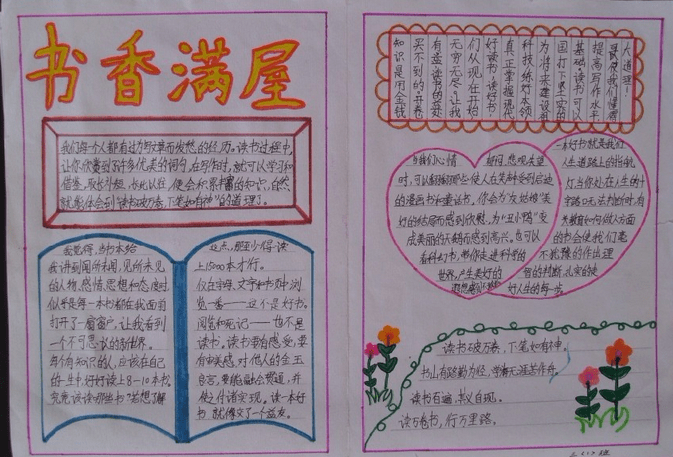 书香满屋
我们每个人都有过为写文章而发愁的经历。读书过程中,
让你欣赏到了许多优美的词句,在写作时,就可以学习和
借鉴,取长补短,长此以往,便会积累丰富的知识,自然
就能体会到“读书破万卷,下笔如有神”的道理了。
我觉得,当书本给
我讲到闻所未闻,见所未见
的人物、感情、思想和态度时
似乎是每一本书都在我面前
打开了一扇窗户,让我看到
一个不可思议的新世界。
每个有知识的人,应该在自己
的一生中,好好读上8-10本书。
究竟该读哪些书,若想了解
这点,那至少得读
上15000本才行。
仅在字母、文字和书页中浏
览一番——这不是好书。
阅览和死记——也不是
读书。读书要有感受,要
有审美感,对他人的金玉
良言,要能融会贯通,并
使之付诸实现。读一本好
书,就得交了一个益友。
知识是用金钱
买不到的。开卷
有益,读书的益处
无穷无尽。让我
们从现在开始
好读书,读好书!
真正掌握现代
科技练好本领
为将来建设祖
国打下坚实的
基础。读书可以
提高写作水平
使我们懂得
大道理!
当我们心情
时,可以翻翻那些使人在笑声中受到启迪
的漫画书和童话书,你会为“灰姑娘”美
好的结局而感到欣慰,为“丑小鸭”变
成美丽的天鹅而感到高兴。也可以
看科幻书,带你走进科学的
世界,产生美好的
一本好书就是我们
人生道路上的指航
灯当你处在人生的十
字路口无法判断时,有
关教育如何做人方面
的书会使我们毫
不犹豫的作出理
智的判断,扎实的走
好人生的每一步。
读书破万卷,下笔如有神。
书山有路勤为径,学海无涯苦作舟。
读书百遍,其义自现。
读万卷书,行万里路。